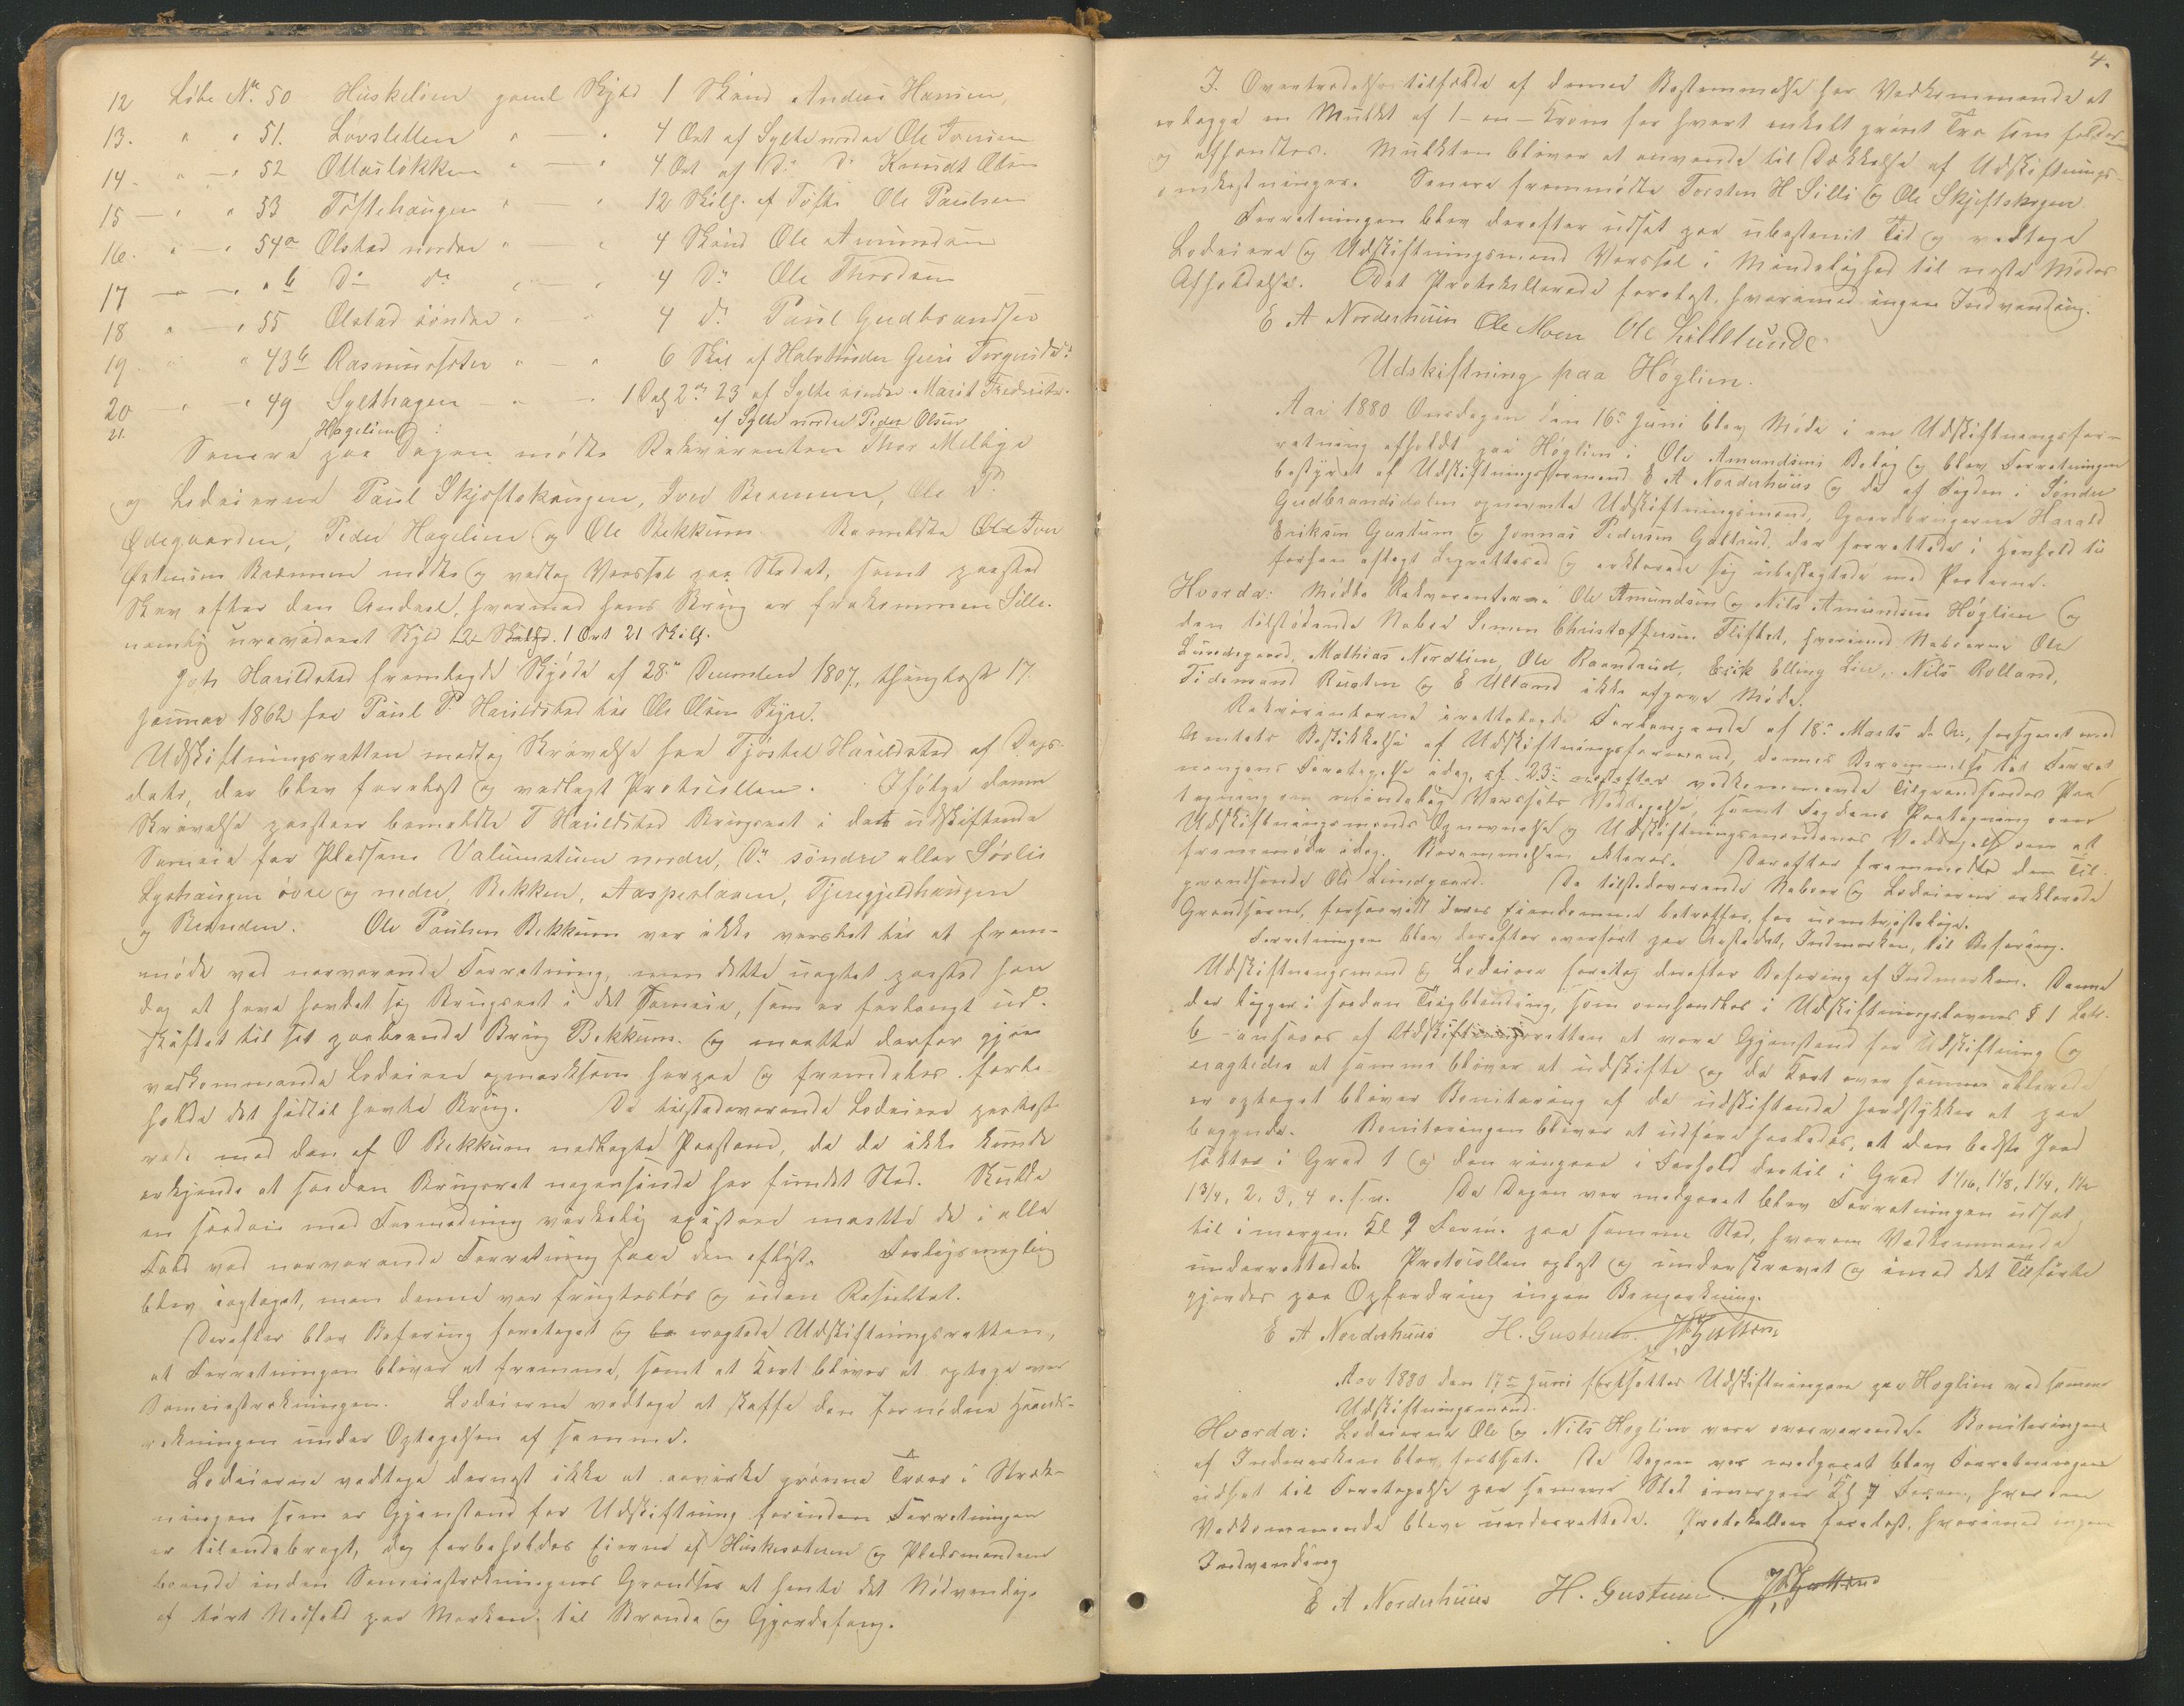 12 Löbe No. 50 Huskelien gaml Skyld 1 Skind Anders Hansen,
13. " " 51. Lovsletten " — " 4 Ort af Sylte nordre Ole Iversen
14. " — " 52 Ollaslökken " — " 4 Ort af Do Do Knudt Olsen
15 — " " 53 Töftehaugen " — " 12 Skill. af Töfte Ole Paulsen
16. " — " 54a Olstad nordre " — " 4 Skind Ole Amundsen
17 — " — " " b Do do " — " 4 Do Ole Thordsen
18 " — " 55 Olstad söndre " " 4 Do Paul Gudbrandsen
19 " " " 43b Rasmussæter " — " 6 Skil af Guri Torgersd.
20 — " — " 49 Sylthagen — " — " 1 Ort 23 af Sylte söndre Marit Fredriksd.
21. Hagelien af Sylte nordre Peder Olsen
Senere paa Dagen mödte Rekvirenten Thor Melbye
og Lodeierne Paul Skjeftehaugen, Iver Brennen, Ole P.
Ödegaarden, Peder Hagelien og Ole Bekkum. Bemeldte Iver
Brennen mödte og vedtog Varsel paa Stedet, samt paastod
Skov efter den Andeel, hvormed hans Brug er frakommen Sille.
nemlig urevideret Skyld 1 Ort 21 Skill.
Joh. Harildstad fremlagde Skjöde af 28de December 1807, thinglæst 17
Januar 1862 fra Paul P. Haurildstad til Ole Olsen Byre.
Udskiftningsretten modtog Skrivelse fra Tjöstel Haurildstad af Dags
dato, der blev forelæst og vedlagt Protocollen. Ifölge denne
Skrivelse paastaar bemeldte T Haurildstad Brugsret i det udskiftende
Sameie for Pladsene Valumstuen nordre, Do söndre eller Sörlie
Lyshaugen övre og nedre, Bekken, Aasperlaaen, Tjeregjeldhaugen
og Brænden. Ole Paulsen Bekkum var ikke varslet til at frem-
möde ved nærværende Forretning, men dette uagtet paastod han
dog at have havdet sig Brugsret i det Sameie, som er forlangt ud-
skiftet til sit paaboende Brug Bekkum og maatte derfor gjöre
vedkommende Lodeiere opmærksom herpaa og fremdeles forbe-
holde det hidtil havte Brug. De tilstedeværende Lodeiere protest-
erede mod den af O Bekkum nedlagte Paastand, da de ikke kunde
erkjende at saadan Brugsret nogensinde har fundet Sted. Skulde
en saadan mod Formodning virkelig existere maatte de i alle
Fald ved nærværende Forretning faae den aflöst. Forligsmægling
blev iagttaget, men denne var frugteslös og uden Resultat.
Derefter blev Befaring foretaget og eragtede Udskiftningsretten,
at Forretningen bliver at fremme, samt at Kart bliver at optage over
Sameiestrækningen. Lodeierne vedtoge at skaffe den fornödne Haands-
rækningen under Optagelsen af samme.
Lodeierne vedtoge dernæst ikke at avirke grönne Træer i Stræk-
ningen som er Gjenstand for Udskiftning forinden Forretningen
er tilendebragt, dog forbeholdes Eierne af Huskesæteren og Pladsmændene
boende inden Sameiestrækningens Grændser at hente det Nödvendige
af tört Nedfald paa Marken, til Brænde og Gjerdefang.
4.
I Overtrædelsestilfælde af denne Bestemmelse har Vedkommende at
erlægge en Mulkt af 1 – en – Krone for hvert enkelt grönt Træ som fældes
og afhændes. Mulkten bliver at anvende til Dækkelse af Udskiftnings-
omkostninger. Senere fremmödte Torsten H Silli og Ole Skjeftskogen.
Forretningen blev derefter udsat paa ubestemt Tid og vedtoge
Lodeiere og Udskiftningsmænd Varsel i Mindelighed til næste Mödes
Afholdelse. Det Protokollerede forelæst, hvorimod ingen Indvending.
E A Norderhuus Ole Moen Ole Lillelunde
Udskiftning paa Höglien.
Aar 1880 Onsdagen den 16de Juni blev Möde i en Udskiftningsfor-
retning afholdt paa Höglien i Ole Amundsens Bolig og blev Forretningen
bestyret af Udskiftningsformand E A Norderhuus og de af Fogden i Söndre
Gudbrandsdalen opnævnte Udskiftningsmænd, Gaardbrugerne Harald
Eriksen Gustum og Jonnas Pedersen Galtrud, der forrettede i Henhold til
forhen aflagt og erklærede sig ubeslægtede med Parterne.
Hvorda: Mödte Rekvirenterne Ole Amundsen og Nils Amundsen Höglien og
den tilstödende Nabo Simen Christoffersen Fliflet, hvorimod Naboerne Ole
Lunedegaard, Mathias Nordlien, Ole Raandrud, Erik Elling Lie, Nils Rolland,
Tidemand Rusten og E Ulland ikke afgave Möde.
Rekvirenterne irettelagde Forlangende af 18de Marts d. A., forsynet med
Amtets Beskikkelse af Udskiftningsformand, dennes Berammelse til Forret-
ningens Foretagelse idag, af 23de vedkommende Tilgrændsendes Paa-
tegning om mindelig Varsels Vedtagelse, samt Fogdens Paategning om
Udskiftningsmænds Opnævnelse og Udskiftningsmændenes Vedtagelse om at
fremmöde idag. Berammelsen akteres. Derefter fremmödte den til-
grændsende Ole Lundgaard. De tilstedeværende Naboer og Lodeierne erklærede
Grændserne, forsaavidt deres Eiendomme betræffer, for uomtvistelige.
Forretningen blev derefter overfört paa Aastedet, Indmarken, til Befaring.
Udskiftningsmænd og Lodeiere foretog derefter Befaring af Indmarken. Denne
der ligger i saadan Teigblanding, som omhandles i Udskiftningslovens § 1 Litr.
b – ansees af Udskiftningsretten at være Gjenstand for Udskiftning og
eragtedes at samme bliver at udskifte og da Kart over samme allerede
er optaget bliver Bonitering af de udskiftende Jordstykker at paa
begynde. Boniteringen bliver at udföre saaledes, at den bedste Jord
sættes i Grad 1 og den ringere i Forhold dertil i Grad 1 1/16, 1 1/8, 1 1/4, 1 1/2
1 3/4, 2, 3, 4 o.s.v. Da Dagen var medgaaet blev Forretningen udsat
til imorgen Kl 7 Form. paa samme Sted, hvorom Vedkommende
underrettedes. Protocollen oplæst og underskrevet og imod det Tilförte
gjordes paa Opfordring ingen Bemærkning.
E A Norderhuus H. Gustum
Aar 1880 den 17de Juni fortsættes Udskiftningen paa Höglien ved samme
Udskiftningsmænd.
Hvorda: Lodeierne Ole og Nils Höglien vare overværende. Boniteringen
af Indmarken blev fortsat. Da Dagen var medgaaet blev Forretningen
udsat til Foretagelse paa samme Sted imorgen Kl 7 Form., hvorom
Vedkommende bleve underrettede. Protokollen forelæst, hvorimod ingen
Indvending
E A Norderhuus H. Gustum